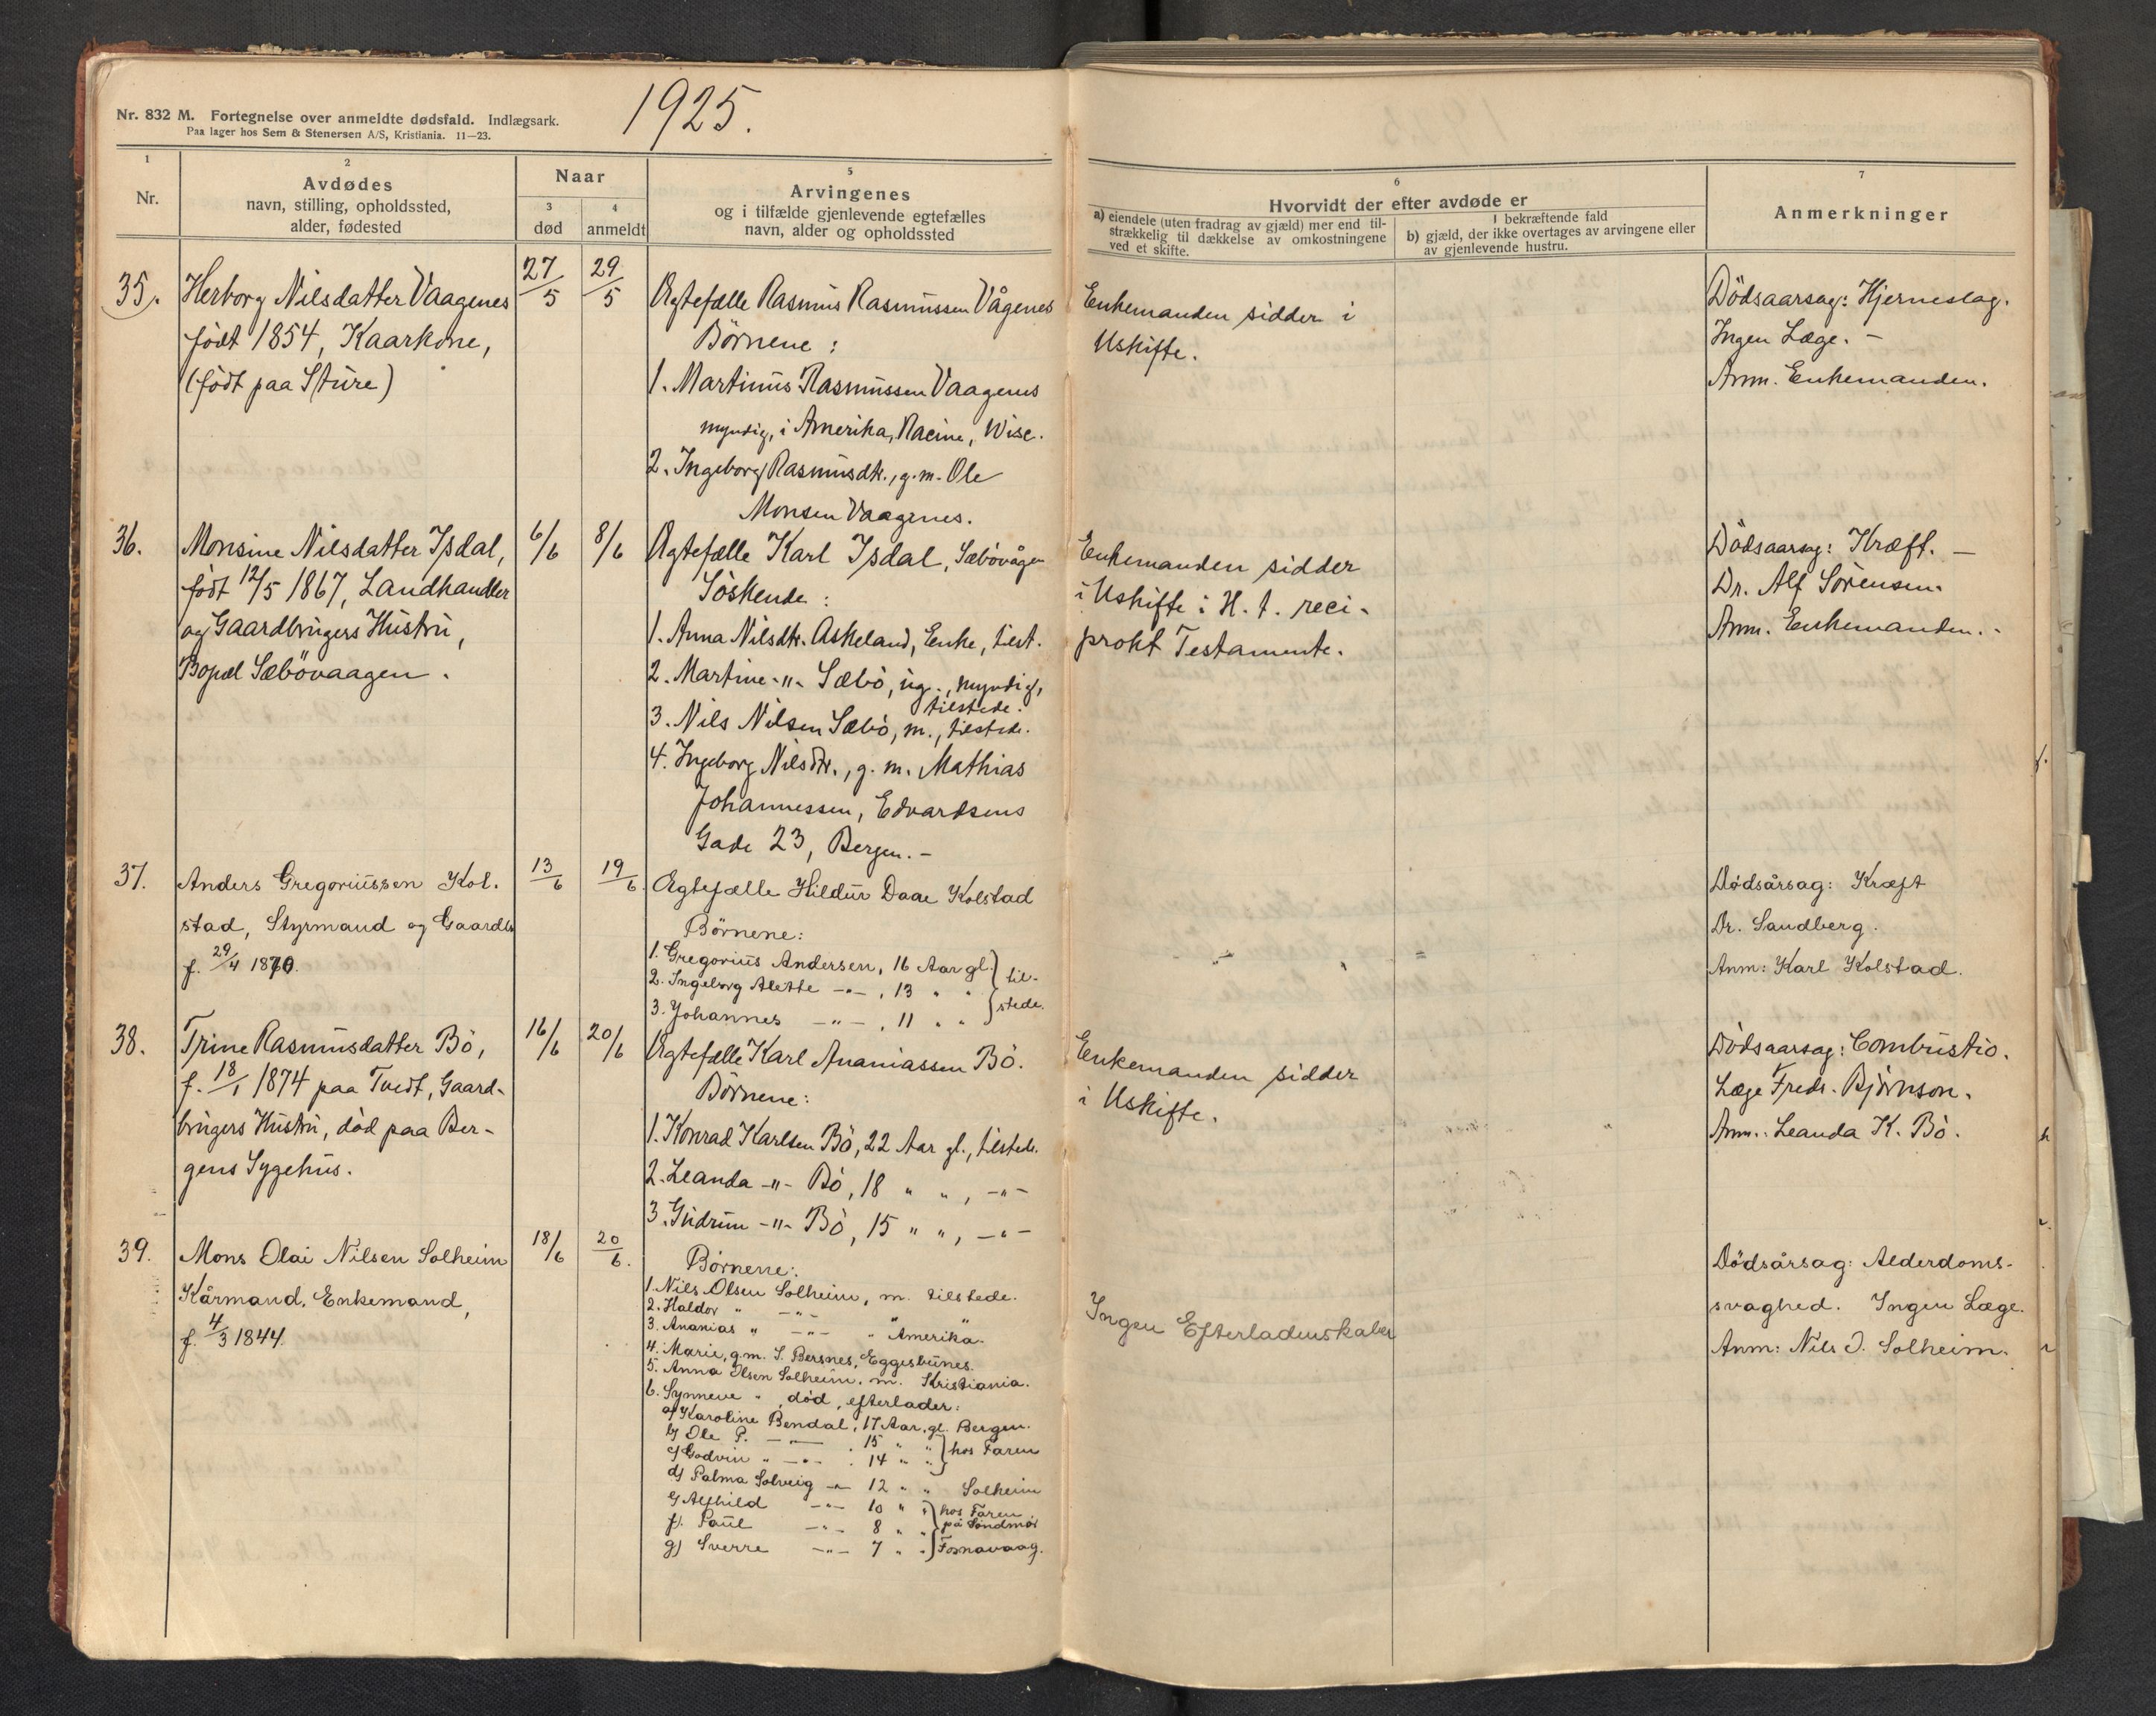 Nr. 832 M. Fortegnelse over anmeldte dødsfald. Indlægsark.
Paa lager hos Sem & Stenersen A/S, Kristiania. 11—23.
1925.
1
Nr.
2
Avdødes
navn, stilling, opholdssted,
alder, fødested
Naar
3
død
4
anmeldt
5
Arvingenes
og i tilfælde gjenlevende egtefælles
navn, alder og opholdssted
6
Hvorvidt der efter avdøde er
a) eiendele (uten fradrag av gjæld) mer end til-
strækkelig til dækkelse av omkostningene
ved et skifte.
I bekræftende fald
b) gjæld, der ikke overtages av arvingene eller
av gjenlevende hustru.
7
Anmerkninger
35.
Herborg Nilsdatter Vaagenes
født 1854, Kaarkone,
(født paa Sture)
27/5
29/5
Ægtefælle Rasmus Rasmussen Vågenes
Børnene:
1. Martinus Rasmussen Vaagenes
myndig, i Amerika, Racine, Wisc.
2. Ingeborg Rasmusdtr., g.m. Ole
Monsen Vaagenes.
Enkemanden sidder i
Uskifte.
Dödsaarsag: Hjerneslag.
Ingen Læge. —
Anm. Enkemanden.
36.
Monsine Nilsdatter Isdal,
født 12/5 1867, Landhandler
og Gaardbrugers Hustru,
Bopæl Sæbövaagen.
6/6
8/6
Ægtefælle Karl Isdal, Sæbövågen
Söskende:
1. Anna Nilsdtr. Askeland, Enke, tilst.
2. Martine -"- Sæbö, ug., myndig,
tilstede.
3. Nils Nilsen Sæbö, m., tilstede.
4. Ingeborg Nilsdtr., g. m. Mathias
Johannessen, Edvardsens
Gade 23, Bergen. —
Enkemanden sidder
i Uskifte i H. t. reci-
prokt Testamente.
Dödsaarsag: Kræft. —
Dr. Alf Sörensen.
Anm. Enkemanden. -
37.
Anders Gregoriussen Kol-
stad, Styrmand og Gaardb.
f. 29/4 1870.
13/6
19/6.
Ægtefælle Hildur Daae Kolstad
Børnene:
1. Gregorius Andersen, 16 Aar gl. } til-
2. Ingeborg Alette -"-, 13 " "
3. Johannes -"-, 11 " " } stede.
Dødsårsag: Kræft
Dr. Sandberg.
Anm: Karl Kolstad.
38.
Trine Rasmusdatter Bö,
f. 18/1 1874 paa Tvedt, Gaard-
brugers Hustru, död paa Ber-
gens Sygehus.
16/6
20/6
Ægtefælle Karl Ananiassen Bö.
Börnene:
1. Konrad Karlsen Bö, 22 Aar gl., tilstede.
2. Leanda -"- Bö, 18 " ", -"-
3. Gudrun -"- Bö, 15 " ", -"-
Enkemanden sidder
i Uskifte.
Dödsaarsag: Combustio.
Læge Fredr. Björnson.
Anm.: Leanda K. Bö.
39.
Mons Olai Nilsen Solheim
Kårmand, Enkemand,
f. 4/3 1844.
18/6
20/6.
Børnene:
1. Nils Olsen Solheim, m. tilstede.
2. Haldor " -"- " "
3. Ananias " -"- " Amerika.
4. Marie, g.m. S. Bersnes, Eggesbønes.
5. Anna Olsen Solheim, m. Kristiania.
6. Synneve ", død, efterlader:
a) Karoline Bendal, 17 Aar, gl. Bergen.
b) Ole P. -"- 15 " " } hos Faren
c) Godvin " -"- 14 " "
d) Palma Solveig -"- 12 " " Solheim
e) Alfhild -"- 10 " " } hos Faren
f) Paul -"- 8 " " på Søndmør
g) Sverre -"- 7 " " } Fosnavaag.
Ingen Efterladenskaber
Dödsårsag: Alderdoms-
svaghed. Ingen Læge.
Anm: Nils O. Solheim.